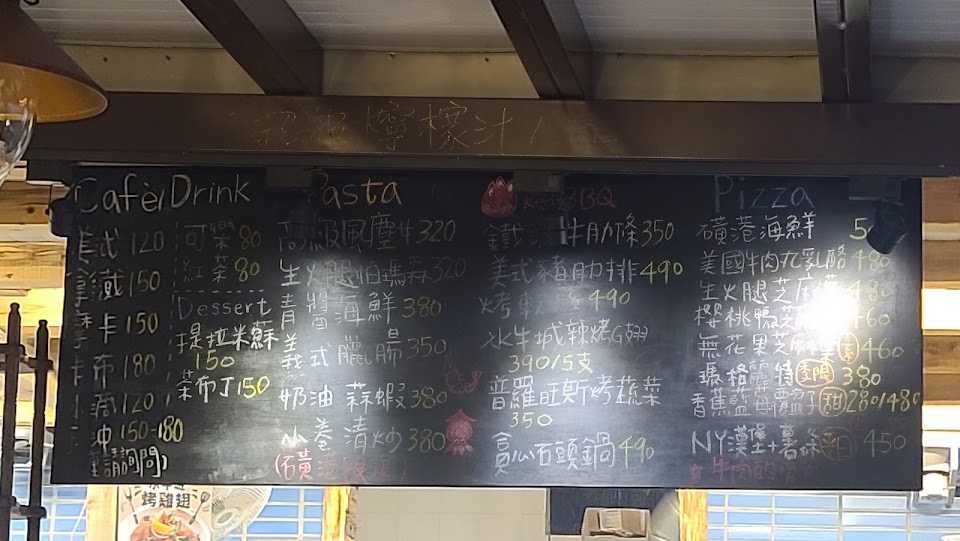 檸檬汁
Cafè/Drink
美式 120
拿鐵 150
摩卡 150
卡布 180
120
沖 150-180
請詢問)
可樂 80
紅茶 80
Dessert
提拉米蘇
150
茶布丁 150
Pasta
高級風塵牛 320
生火腿伯瑪森 320
青醬海鮮 380
義式臘腸 350
奶油蒜蝦 380
小卷清炒 380
BBQ
牛肋條 350
美式豬肋排 490
烤 490
水牛城辣烤G翅
390/5支
普羅旺斯烤蔬菜
350
貪心石頭鍋 490
Pizza
磺港海鮮
美國牛肉丸乳酪 480
生火腿芝麻葉 480
櫻桃鴨芝 460
無花果芝 460
瑪格麗特 380
香蕉藍莓 甜 280/480
NY漢堡+薯條 450
烤雞翅